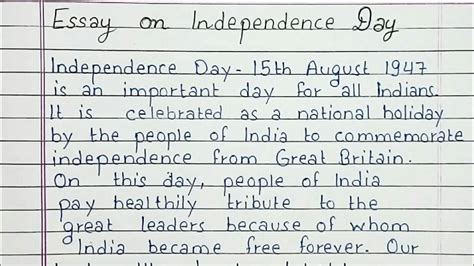 Essay on Independence Day
Independence Day - 15th August 1947
is an important day for all Indians.
It is celebrated as a national holiday
by the people of India to commemorate
independence from Great Britain.
On this day, people of India
pay healthily tribute to the
great leaders because of whom
India became free forever. Our